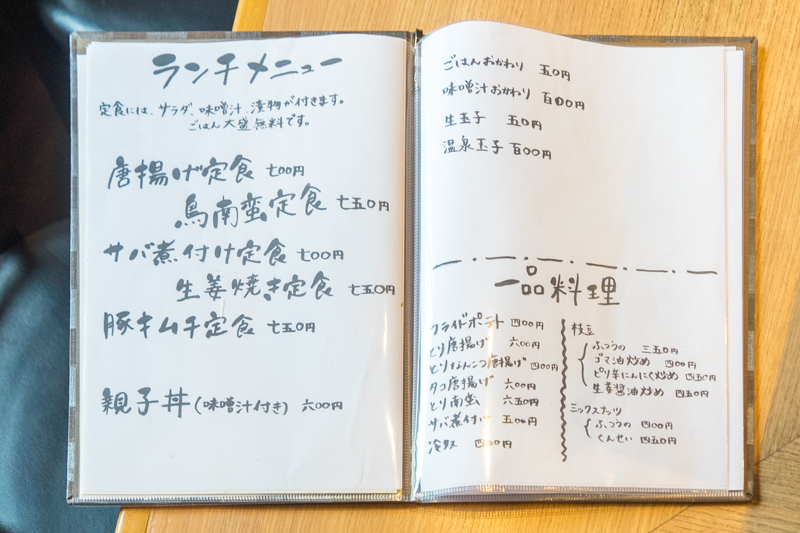 ランチメニュー
定食には、サラダ、味噌汁、漬物が付きます。
ごはん大盛無料です。
唐揚げ定食 七〇〇円
鳥南蛮定食 七五〇円
サバ煮付け定食 七〇〇円
生姜焼き定食 七五〇円
豚キムチ定食 七五〇円
親子丼(味噌汁付き) 六〇〇円
ごはんおかわり 五〇円
味噌汁おかわり 百〇〇円
生玉子 五〇円
温泉玉子 百〇〇円
一品料理
フライドポテト 四〇〇円
とり唐揚げ 六〇〇円
とりなんこつ唐揚げ 四〇〇円
タコ唐揚げ 六〇〇円
とり南蛮 六五〇円
サバ煮付け 五〇〇円
冷奴 四〇〇円
枝豆
ふつうの 三五〇円
ゴマ油炒め 四〇〇円
ピリ辛にんにく炒め 四五〇円
生姜醬油炒め 四五〇円
ミックスナッツ
ふつうの 四〇〇円
くんせい 四五〇円